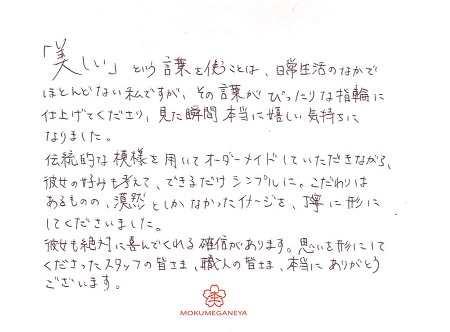 「美しい」という言葉を使うことは、日常生活のなかで
ほとんどない私ですが、その言葉がぴったりな指輪に
仕上げてくださり、見た瞬間本当に嬉しい気持ちに
なりました。
伝統的な模様を用いてオーダーメイドしていただきながら、
彼女の好みも考えて、できるだけシンプルに。こだわりは
あるものの、漠然としかなかったイメージを、丁寧に形に
してくださいました。
彼女も絶対に喜んでくれる確信があります。思いを形にして
くださったスタッフの皆さま、職人の皆さま、本当にありがとう
ございます。
MOKUMEGANEYA